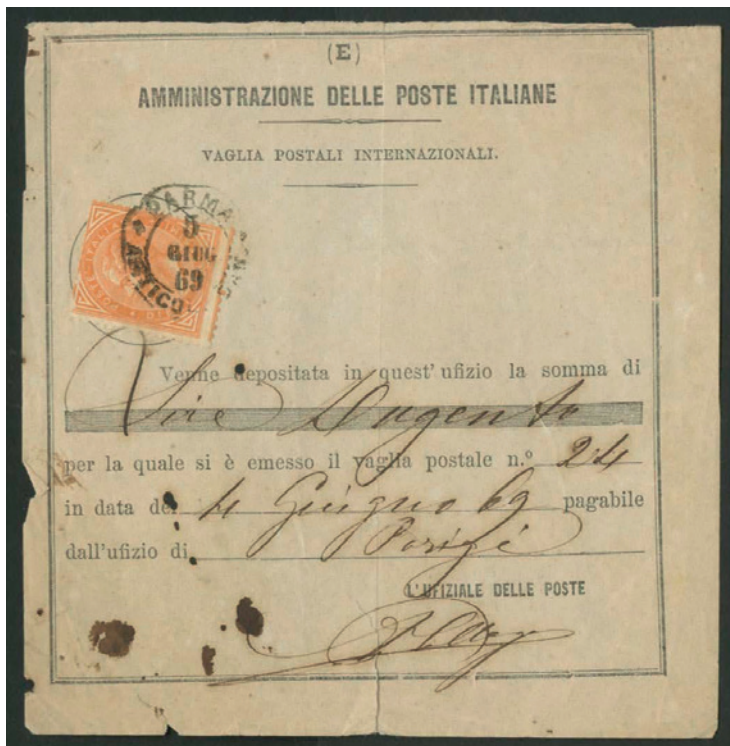 (E)
AMMINISTRAZIONE DELLE POSTE ITALIANE
VAGLIA POSTALI INTERNAZIONALI.
PARMA
5
GIUG
69
Venne depositata in quest' ufizio la somma di
Lire Dugento
per la quale si è emesso il vaglia postale n.º 24
in data del 4 Giugno 69 pagabile
dall'ufizio di Parigi
L'UFIZIALE DELLE POSTE